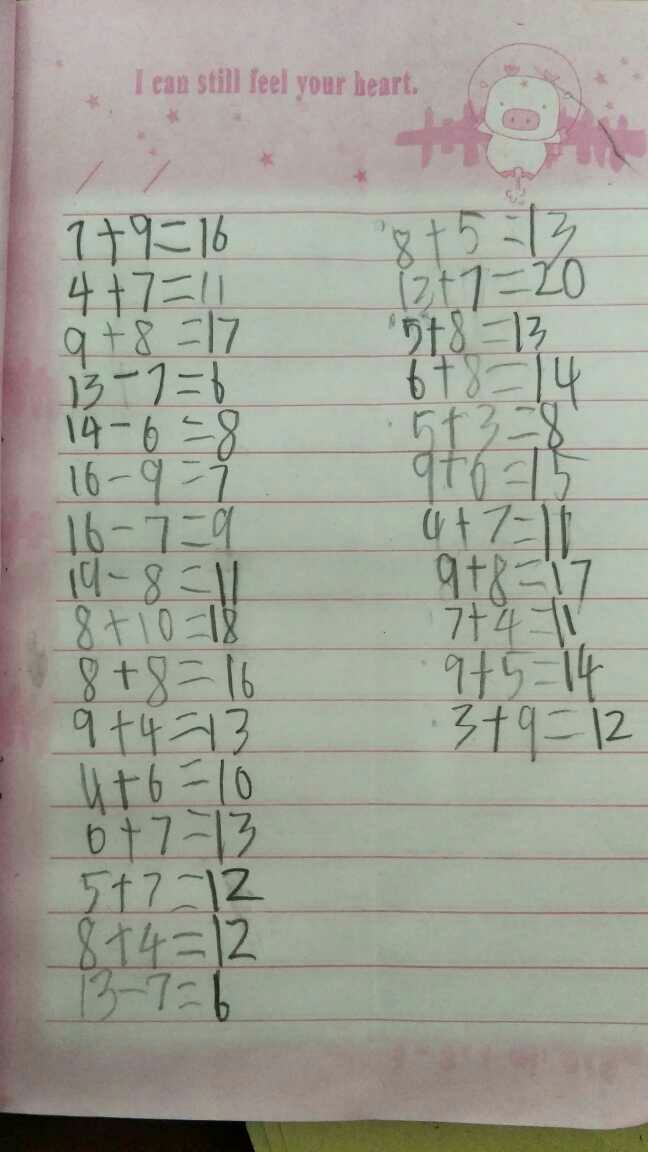 I can still feel your heart.
7+9=16
4+7=11
9+8=17
13-7=6
14-6=8
16-9=7
16-7=9
19-8=11
8+10=18
8+8=16
9+4=13
4+6=10
6+7=13
5+7=12
8+4=12
13-7=6
8+5=13
13+7=20
5+8=13
6+8=14
5+3=8
9+6=15
4+7=11
9+8=17
7+4=11
9+5=14
3+9=12